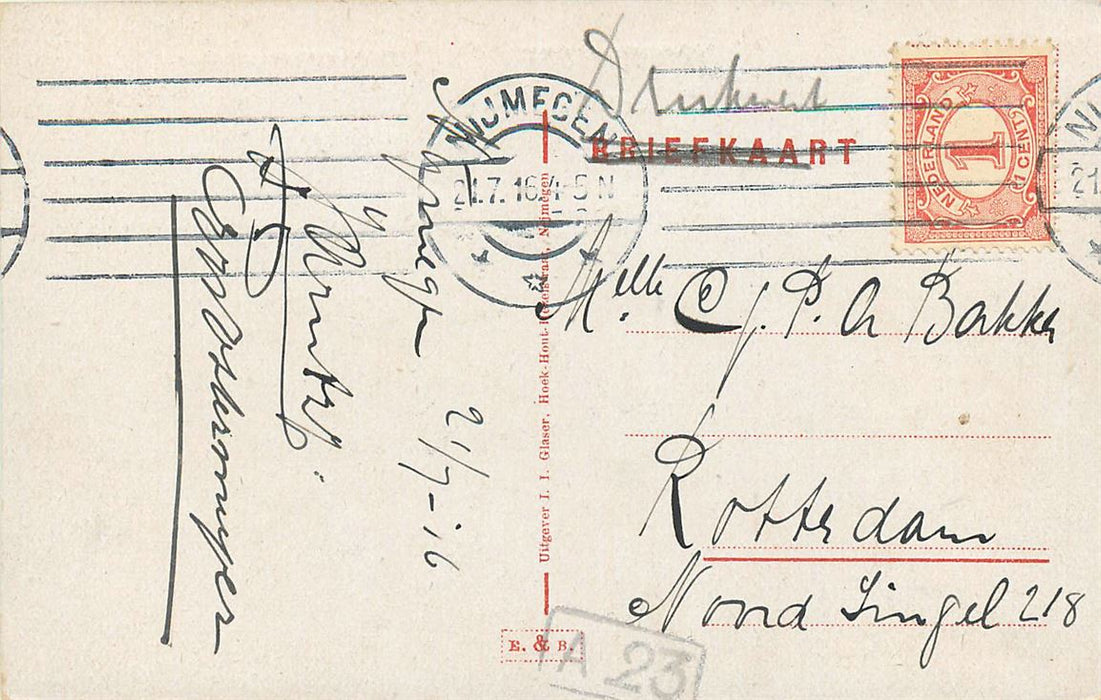 Drukwerk
BRIEFKAART
NEDERLAND
1
1 CENT
NIJMEGEN
21.7.16 4-5 N
NIJ
21.
Melle C. J. P. A Bakker
Rotterdam
Noord Singel 218
Nijmegen 21/7-16
Uitgever I. I. Glaser, Hoek-Hout-Hezelstraat, Nijmegen
E. & B.
A 23